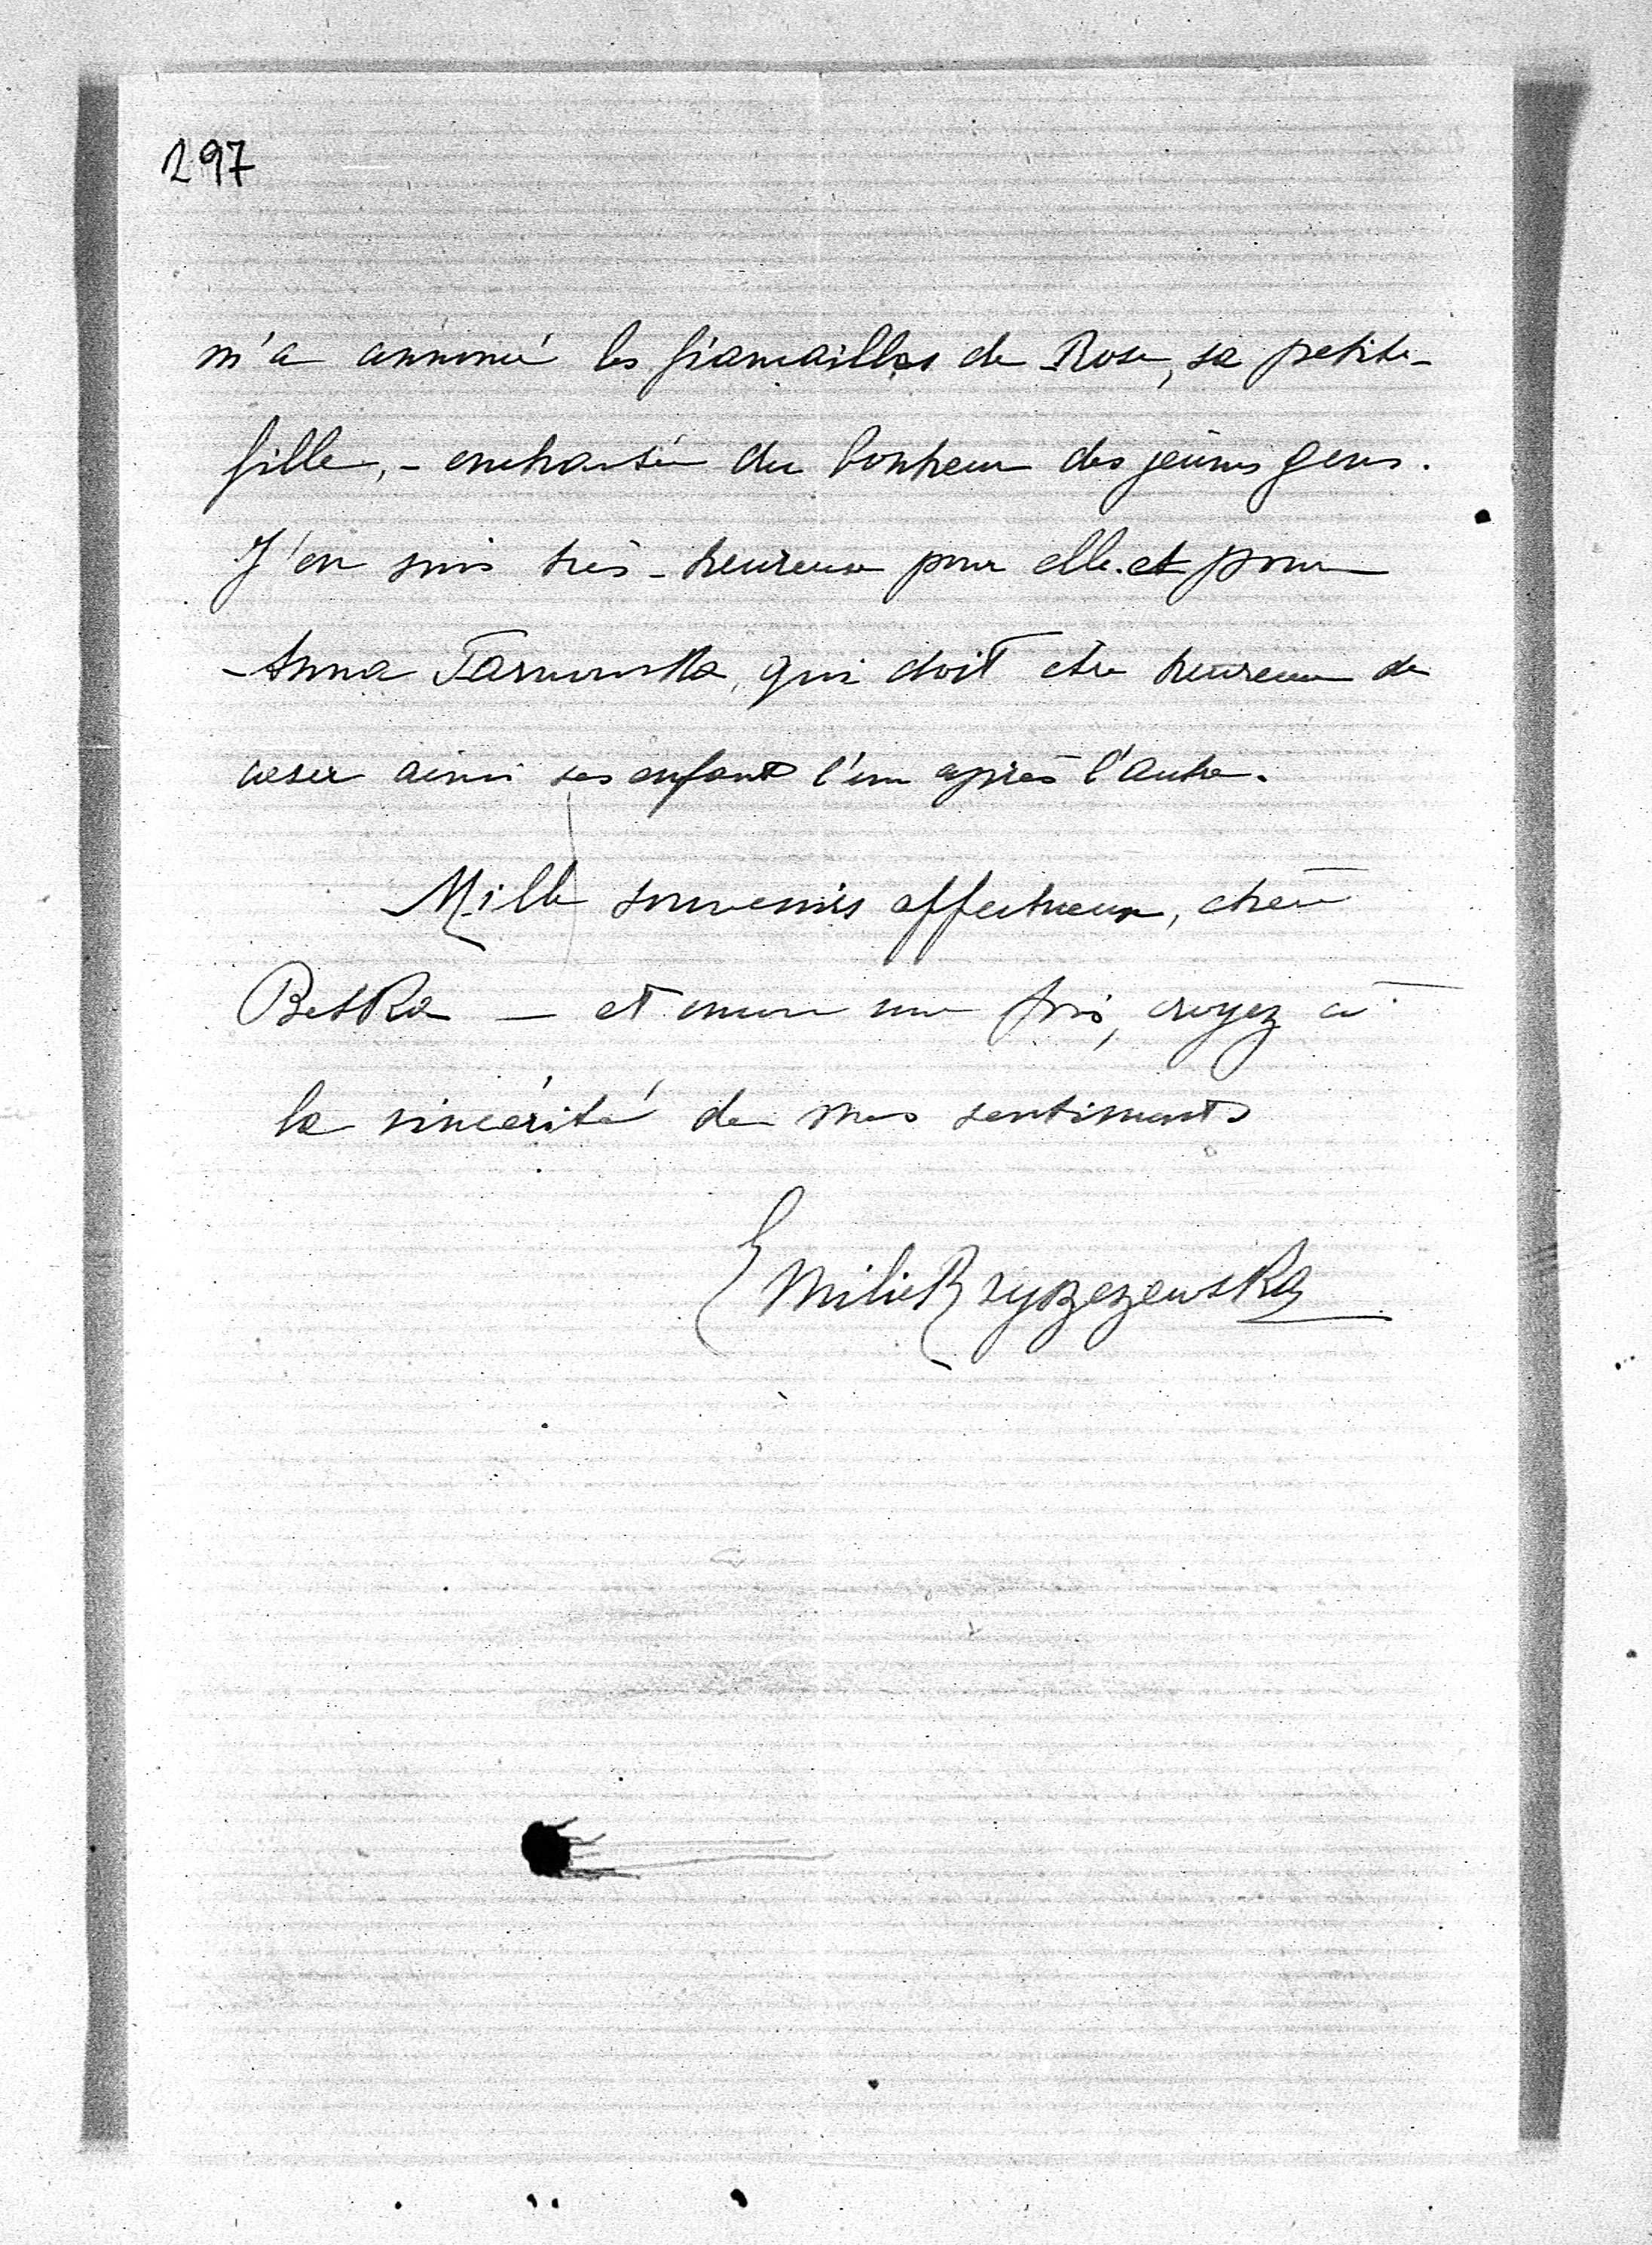 297
m'a annoncé les fiançailles de Rose, sa petite-
fille, - enchantée du bonheur des jeunes gens.
J'en suis très-heureuse pour elle et pour
Anna Tarnowska, qui doit être heureuse de
caser ainsi ses enfants l'un après l'autre.
Mille souvenirs affectueux, chère
Betka — et encore une fois, croyez à
la sincérité de mes sentiments
Emilie